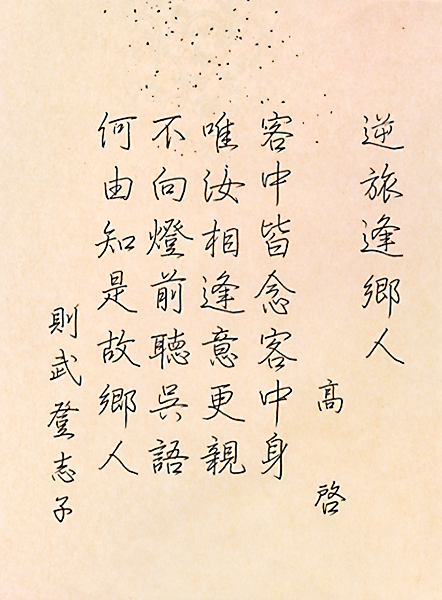 逆旅逢鄉人
高啓
客中皆念客中身
唯汝相逢意更親
不向燈前聽呉語
何由知是故鄉人
則武登志子